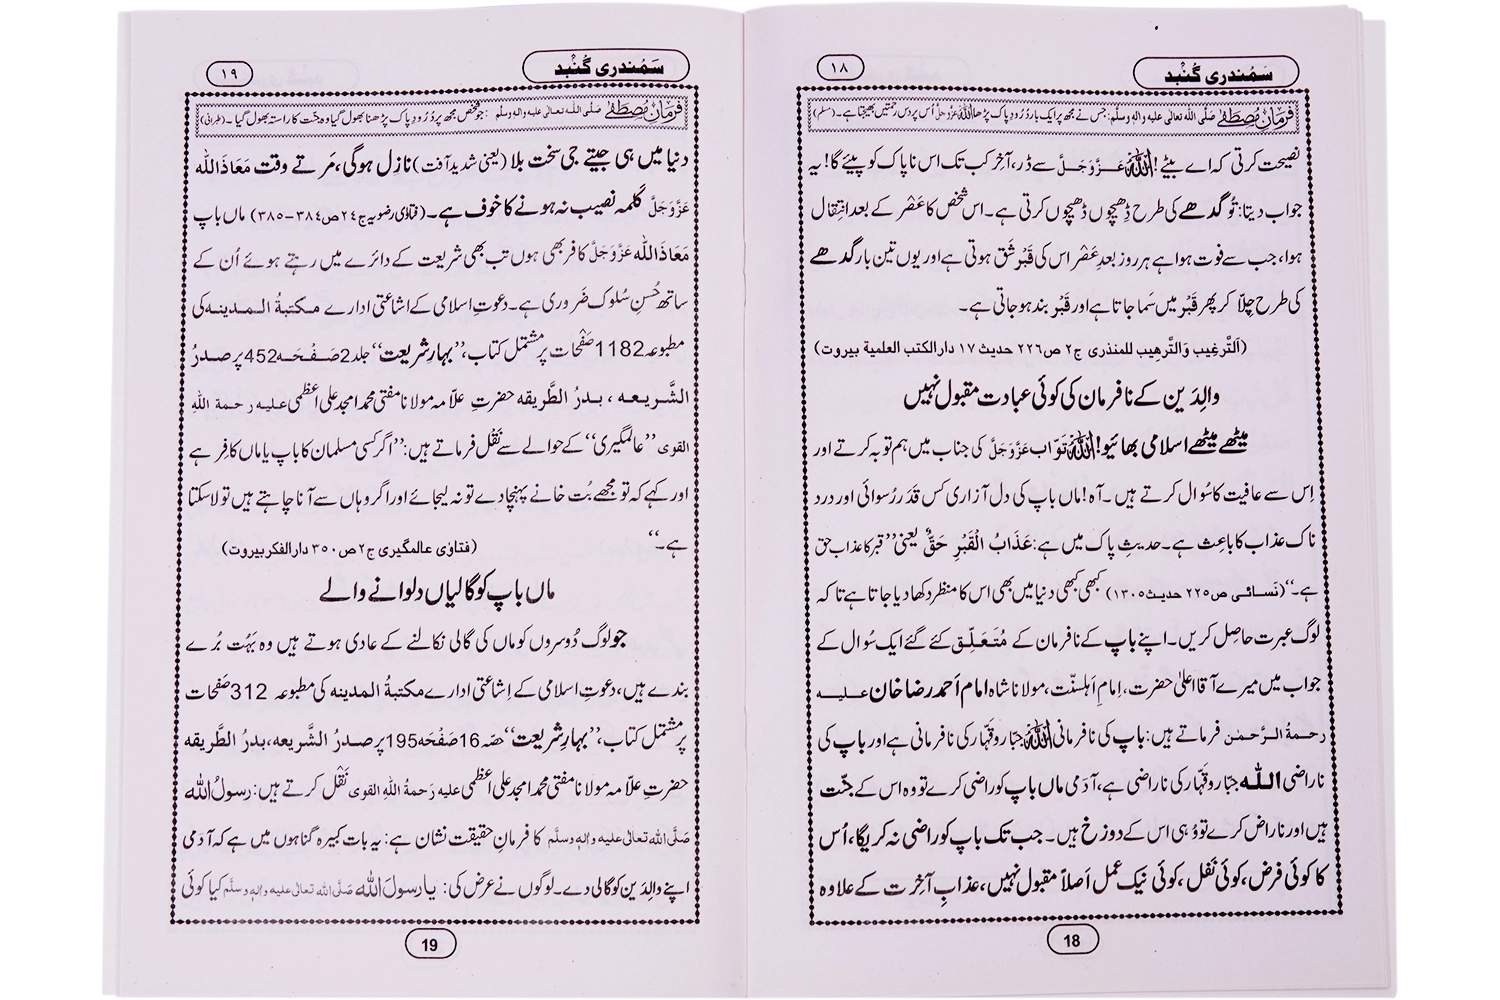 سَمُندری گُنبد
۱۸
فرمانِ مُصطَفٰے صَلَّی اللہ تعالیٰ علیہ واٰلہٖ وسلَّم: جس نے مجھ پر ایک بار دُرُودِ پاک پڑھا اللہ عَزَّوَجَلَّ اُس پر دس رحمتیں بھیجتا ہے۔ (مسلم)
نصیحت کرتی کہ اے بیٹے! اللہ عَزَّوَجَلَّ سے ڈر، آخر کب تک اس ناپاک کو پیئے گا! یہ
جواب دیتا: تُو گدھے کی طرح ڈِھیچوں ڈِھیچوں کرتی ہے۔ اس شخص کا عَصْر کے بعد انتِقال
ہوا، جب سے فوت ہوا ہے ہر روز بعدِ عَصْر اس کی قَبْر شَق ہوتی ہے اور یوں تین بار گدھے
کی طرح چلّا کر پھر قَبْر میں سَما جاتا ہے اور قَبْر بند ہو جاتی ہے۔
(اَلتَّرغِیب وَالتَّرھِیب للمنذری ج۲ ص۲۲٦ حدیث ۱۷ دارالکتب العلمیة بیروت)
والِدَین کے نافرمان کی کوئی عبادت مقبول نہیں
میٹھے میٹھے اسلامی بھائیو! اللہ تَوّاب عَزَّوَجَلَّ کی جناب میں ہم توبہ کرتے اور
اِس سے عافیت کا سُوال کرتے ہیں۔ آہ! ماں باپ کی دل آزاری کس قَدَر رُسوائی اور درد
ناک عذاب کا باعِث ہے۔ حدیثِ پاک میں ہے: عَذَابُ الْقَبْرِ حَقٌّ یعنی ’’قبر کا عذاب حق
ہے۔‘‘ (نَسائی ص۲۲۵ حدیث۱۳۰۵) کبھی کبھی دنیا میں بھی اس کا منظر دکھا دیا جاتا ہے تا کہ
لوگ عبرت حاصل کریں۔ اپنے باپ کے نافرمان کے مُتَعلِّق کئے گئے ایک سُوال کے
جواب میں میرے آقا اعلیٰ حضرت، اِمامِ اَہلسنّت، مولانا شاہ امام اَحمد رضا خان علیہ
رحمۃُ الرَّحمٰن فرماتے ہیں: باپ کی نافرمانی اللہ جبّار و قہّار کی نافرمانی ہے اور باپ کی
ناراضی اللہ جبّار و قہّار کی ناراضی ہے، آدَمی ماں باپ کو راضی کرے تو وہ اس کے جنّت
ہیں اور ناراض کرے تو وُہی اس کے دوزخ ہیں۔ جب تک باپ کو راضی نہ کریگا، اُس
کا کوئی فرض، کوئی نَفل، کوئی نیک عمل اَصلاً مقبول نہیں، عذابِ آخِرت کے علاوہ
18
سَمُندری گُنبد
۱۹
فرمانِ مُصطَفٰے صَلَّی اللہ تعالیٰ علیہ واٰلہٖ وسلَّم: جو شخص مجھ پر دُرُودِ پاک پڑھنا بھول گیا وہ جنّت کا راستہ بھول گیا۔ (طبرانی)
دنیا میں ہی جیتے جی سخت بلا (یعنی شدید آفت) نازِل ہوگی، مَرتے وقت مَعاذَاللہ
عَزَّوَجَلَّ کلمہ نصیب نہ ہونے کا خوف ہے۔ (فتاوٰی رضویہ ج۲٤ ص۳۸٤-۳۸۵) ماں باپ
مَعَاذَاللہ عَزَّوَجَلَّ کافر بھی ہوں تب بھی شریعت کے دائرے میں رہتے ہوئے اُن کے
ساتھ حُسنِ سُلوک ضَروری ہے۔ دعوتِ اسلامی کے اشاعتی ادارے مکتبۃُ المدینہ کی
مطبوعہ 1182 صَفْحات پر مشتمل کتاب، ’’بہارِ شریعت‘‘ جلد 2 صَفْحَہ 452 پر صدرُ
الشَّریعہ، بدرُ الطَّریقہ حضرتِ علّامہ مولانا مفتی محمد امجد علی اعظمی علیہ رحمۃُ اللہِ
القوی ’’عالمگیری‘‘ کے حوالے سے نَقْل فرماتے ہیں: ’’اگر کسی مسلمان کا باپ یا ماں کافِر ہے
اور کہے کہ تو مجھے بُت خانے پہنچا دے تو نہ لیجائے اور اگر وہاں سے آنا چاہتے ہیں تو لا سکتا
ہے۔‘‘ (فتاوٰی عالمگیری ج۲ ص۳۵۰ دارالفکر بیروت)
ماں باپ کو گالیاں دلوانے والے
جو لوگ دُوسروں کو ماں کی گالی نکالنے کے عادی ہوتے ہیں وہ بَہُت بُرے
بندے ہیں، دعوتِ اسلامی کے اِشاعَتی ادارے مکتبۃُ المدینہ کی مطبوعہ 312 صَفْحات
پر مشتمل کتاب، ’’بہارِ شریعت‘‘ حصّہ 16 صَفْحَہ 195 پر صدرُ الشَّریعہ، بدرُ الطَّریقہ
حضرتِ علّامہ مولانا مفتی محمد امجد علی اعظمی علیہ رَحمۃُ اللہِ القوی نَقْل کرتے ہیں: رسولُ اللہ
صَلَّی اللہ تعالیٰ علیہ واٰلہٖ وسلَّم کا فرمانِ حقیقت نشان ہے: یہ بات کبیرہ گناہوں میں ہے کہ آدَمی
اپنے والِدَین کو گالی دے۔ لوگوں نے عرض کی: یا رسولَ اللہ صَلَّی اللہ تعالیٰ علیہ واٰلہٖ وسلَّم کیا کوئی
19